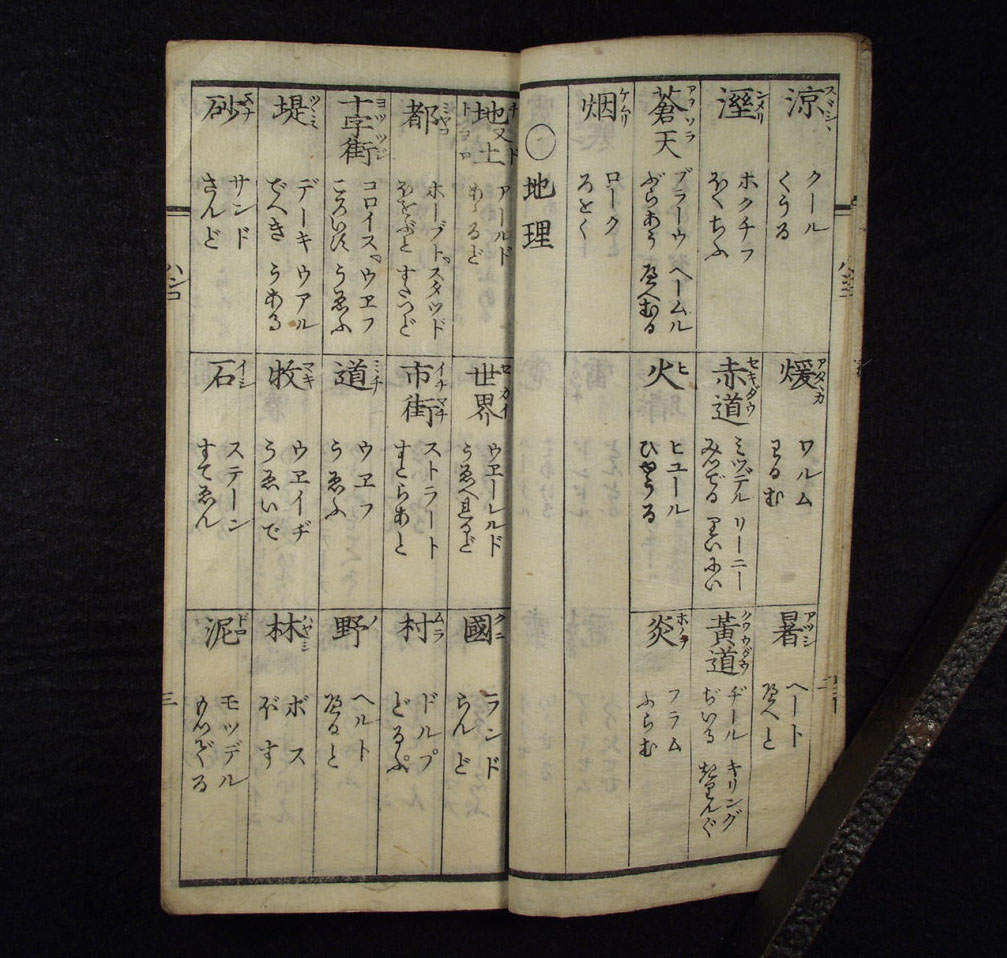 涼 スヾシヽ
クール
くうる
煖 アタヽカ
ワルム
わるむ
暑 アツシ
ヘート
へと
溼 シメリ
ホクチフ
ほくちふ
赤道 セキダウ
ミツデル リーニー
みつでる りいにい
黃道 クワウダウ
ヂール キリング
ぢいる きりんぐ
蒼天 アヲソラ
ブラーウ ヘームル
ぶらあう へえむる
火 ヒ
ヒユール
ひゆうる
炎 ホノヲ
フラム
ふらむ
烟 ケムリ
ローク
ろをく
〇地理
地又土 チ ド トコロ
アールド
ああるど
世界 セカイ
ウヱーレルド
國 クニ
ランド
らんど
都 ミヤコ
ホーブト スタツド
ほをぶと すたつど
市街 イチマチ
ストラート
すとらあと
村 ムラ
ドルプ
どるぷ
十字街 ヨツツジ
コロイス ウヱフ
ころいす うゑふ
道 ミチ
ウヱフ
うゑふ
野 ノ
ヘルト
へると
堤 ツヽミ
デーキ ウアル
でへき うある
牧 マキ
ウヱイヂ
うゑいで
林 ハヤシ
ボス
ぼす
砂 スナ
サンド
さんど
石 イシ
ステーン
すてゑん
泥 ドロ
モツデル
もつでる
三